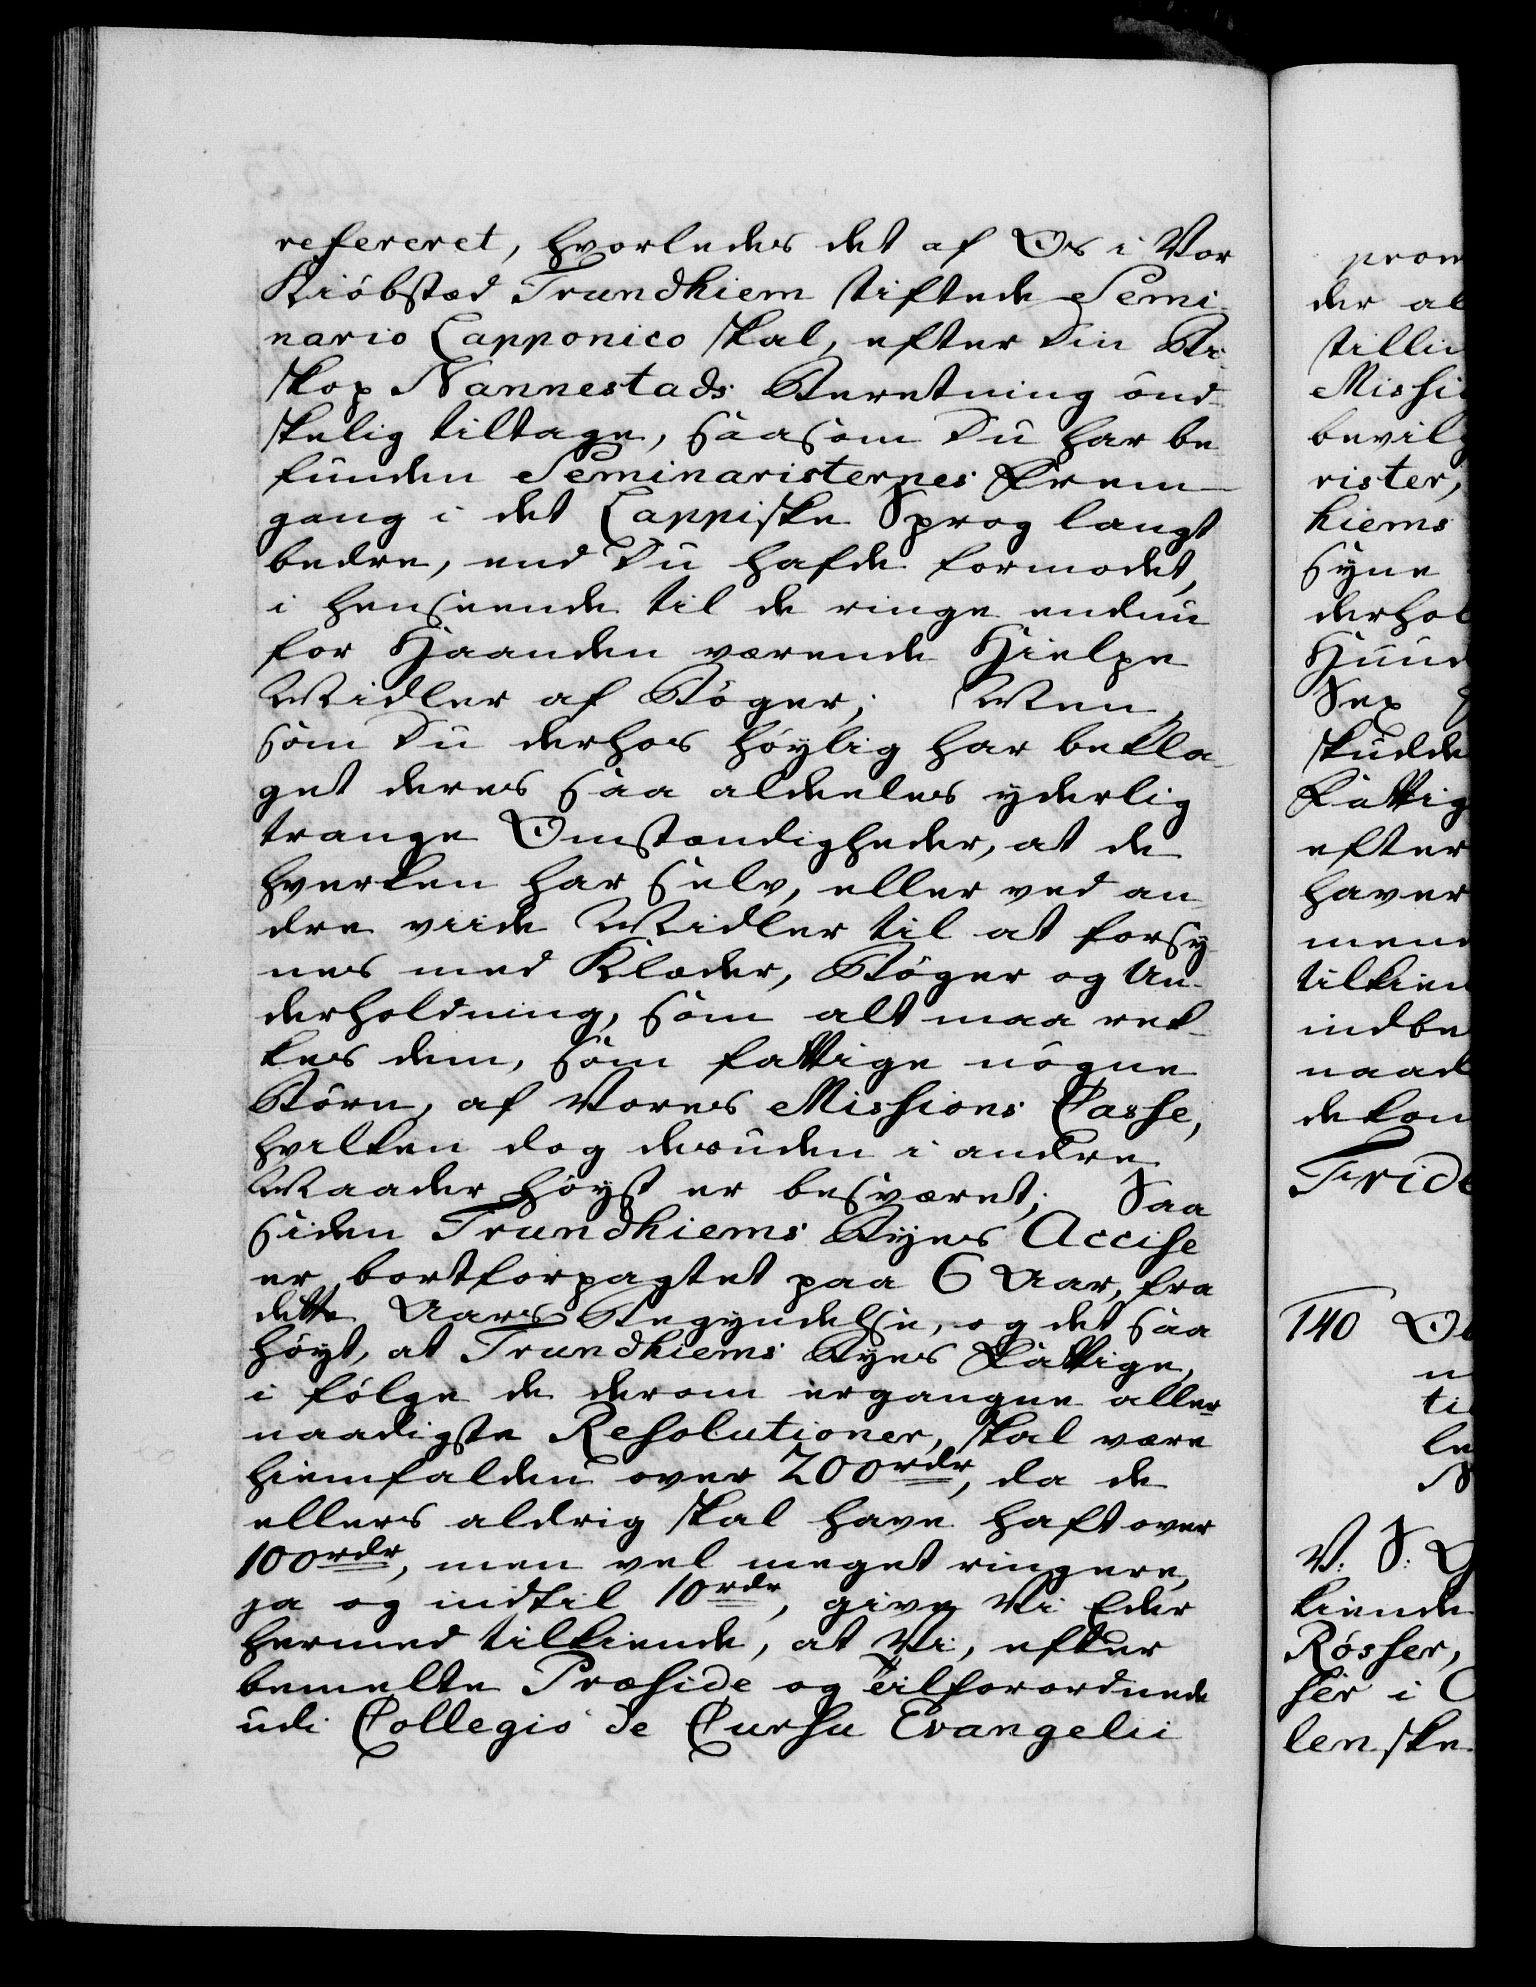 refereret, hvorledes det af Os i Vor
Kiöbstæd Trundhiem stiftede Semi-
nario Lapponico skal, efter Din Bi-
skop Nannestads Beretning önd-
skelig tiltage, saasom Du har be-
funden Seminaristernes Frem-
gang i det Lappiske Sprog langt
bedre, end Du hafde formodet,
i henseende til de ringe endnu
for Haanden værende Hielpe
Midler af Böger; Men,
som Du derhos höylig har bekla-
get deres saa aldeeles yderlig
trange Omstændigheder, at de
hverken har selv, eller ved an-
dre viide Midler til at forsy-
nes med Klæder, Böger og Un-
derholdning, som alt maa rek-
kes dem, som fattige nögne
Börn, af Vores Missions Casse,
hvilken dog desuden i andre
Maader höyst er besværet; Saa
siden Trundhiems Byes Accise
er bortforpagtet paa 6 Aar, fra
dette Aars Begyndelse, og det saa
höyt, at Trundhiems Byes Fattige,
i fölge de derom ergangne aller-
naadigste Resolutioner, skal være
hiemfalden over 200 rdr, da de
ellers aldrig skal have haft over
100 rdr, men vel meget ringere,
ja og indtil 10 rdr, give Vi Eder
hermed tilkiende, at Vi, efter
bemelte Præside og Tilforordnede
udi Collegio de Cursu Evangelii
prom
der al
stillin
Missi
bevilg
rister,
hiems
syne
derhol
Hund
Sex
skudde
Fattig
efter
haver
mend
tilkien
indbe
naad
dekom
Fride
140 Ob
n
ti
le
N
V. S. G
kiende
Rösser,
ser i C
lenske